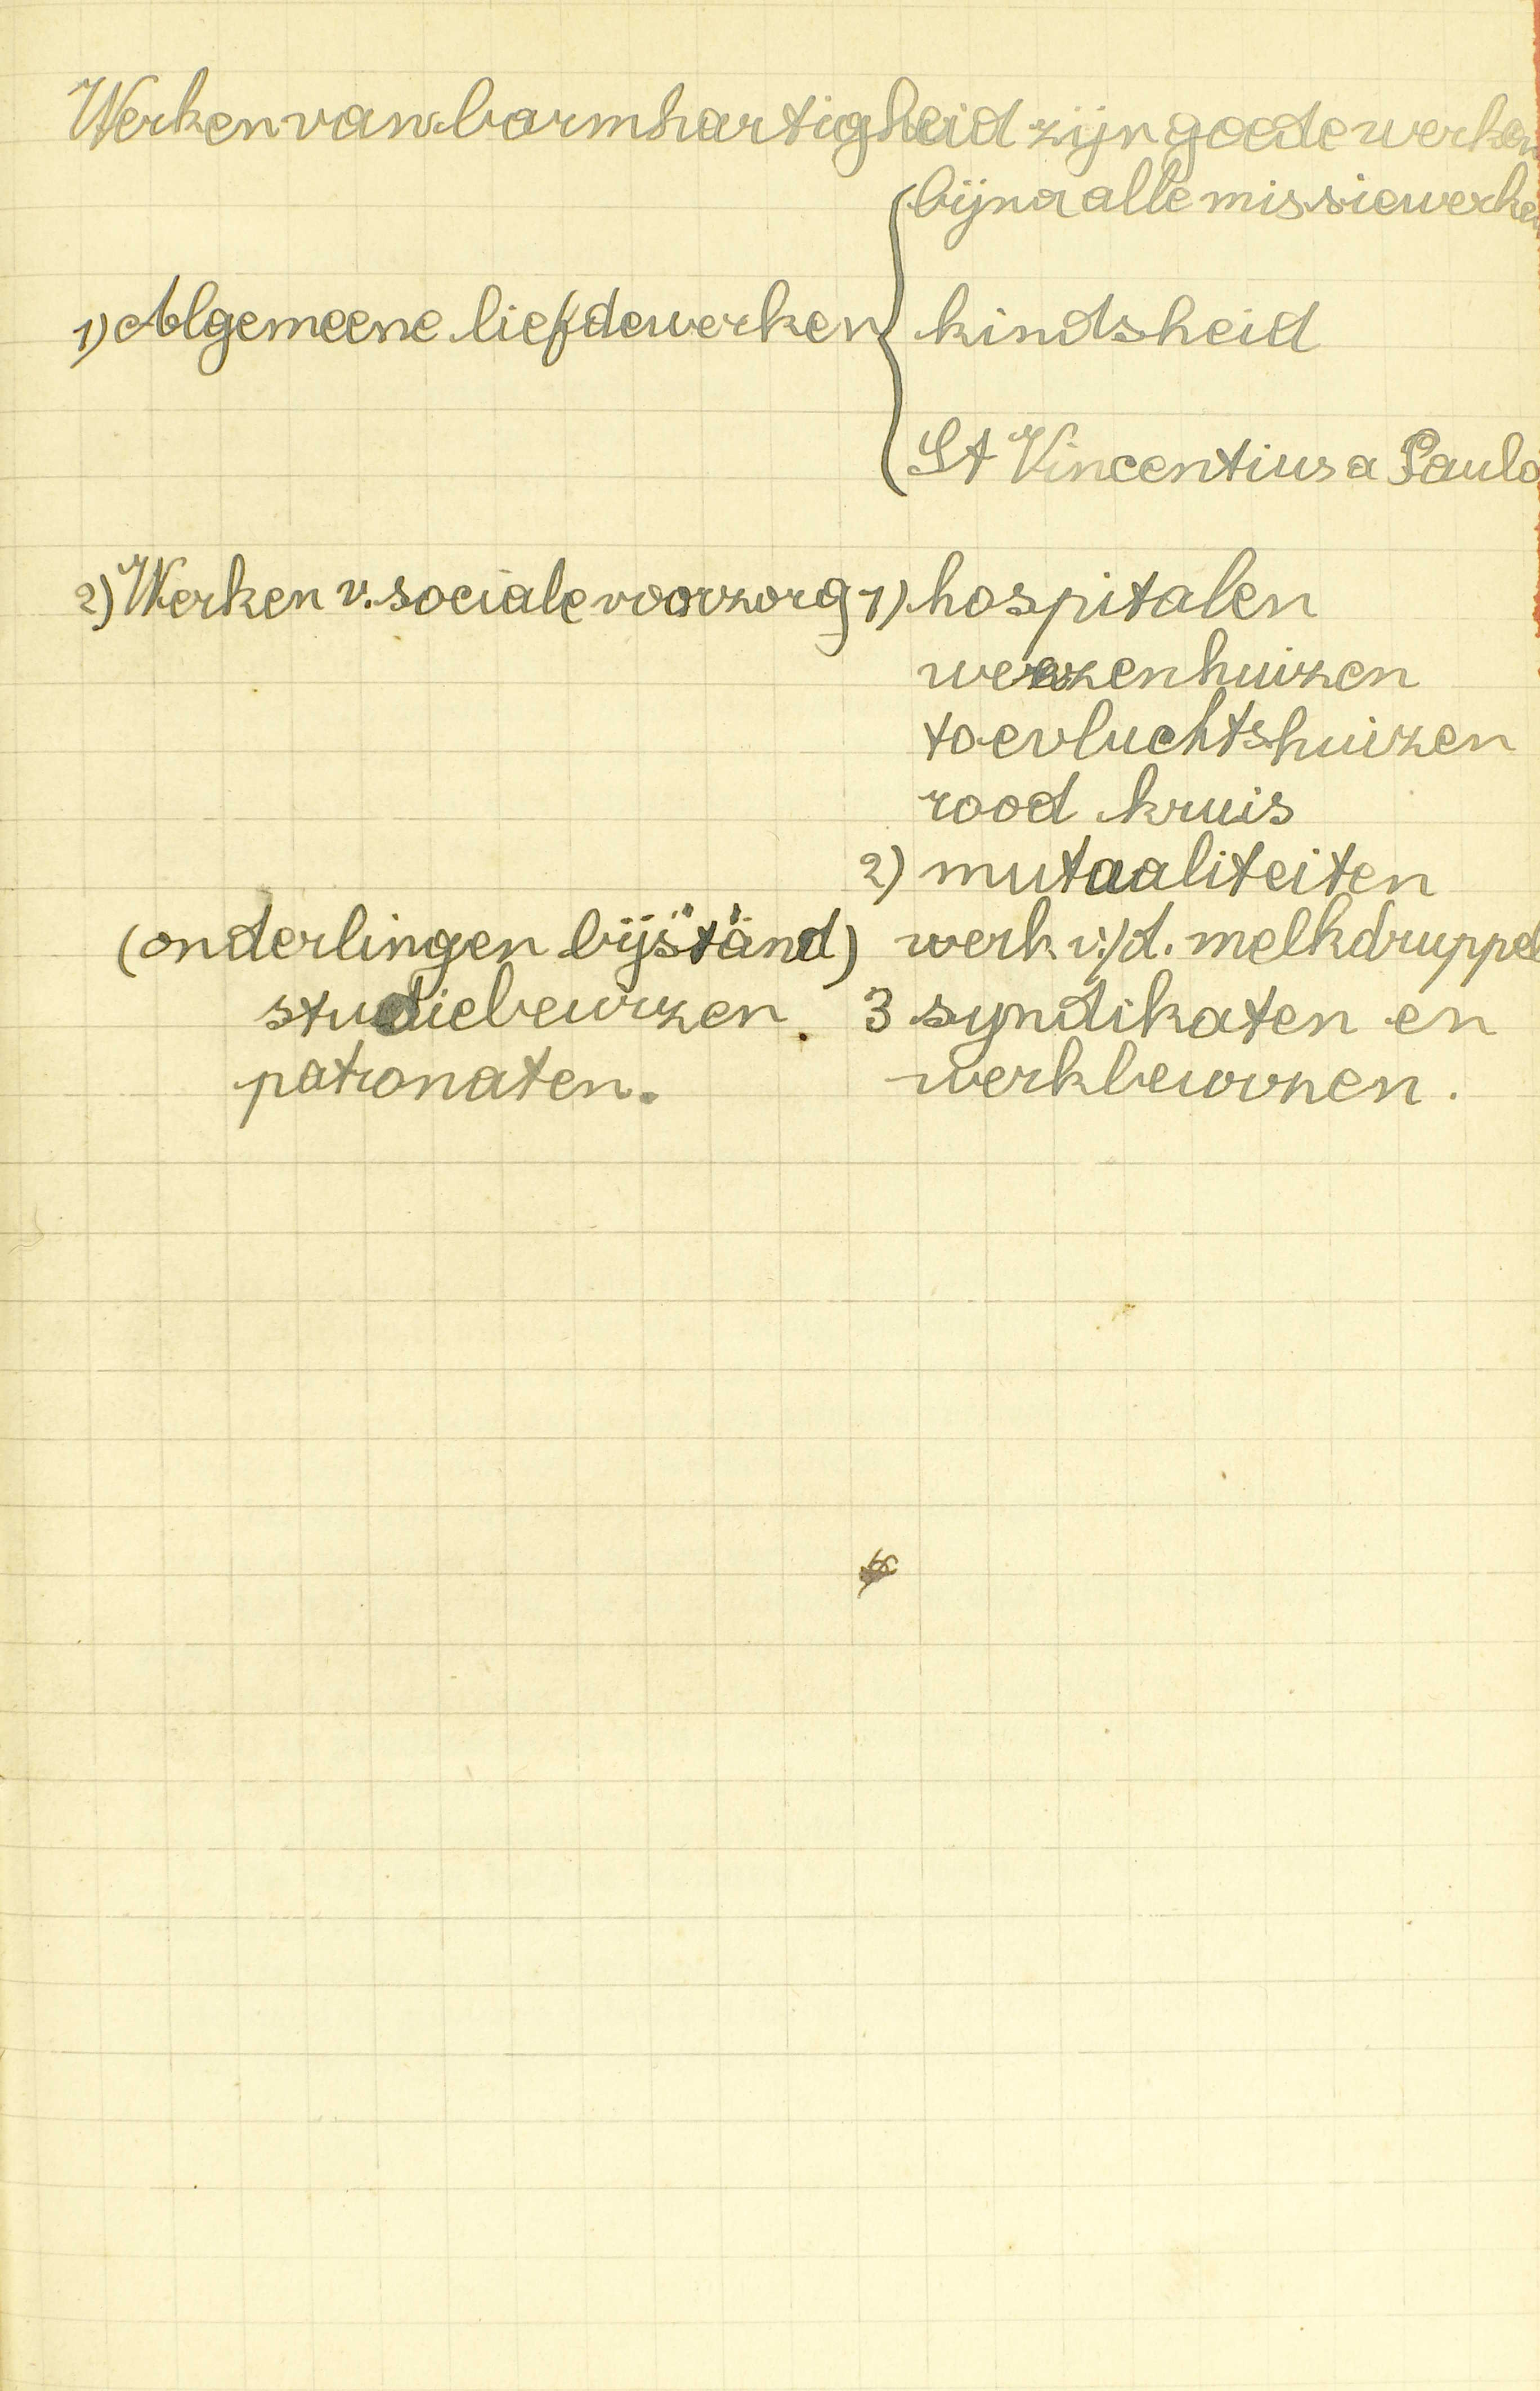 Werken van barmhartigheid zijn goede werken
bijna alle missiewerken
1) Algemeene liefdewerken { kindsheid
St Vincentius a Paulo
2) Werken v. sociale voorzorg 1) hospitalen
weezenhuizen
toevluchtshuizen
rood kruis
2) mutualiteiten
(onderlingen bijstand) werk v/d. melkdruppel
studiebeurzen. 3 syndikaten en
patronaten. werkbeurzen.